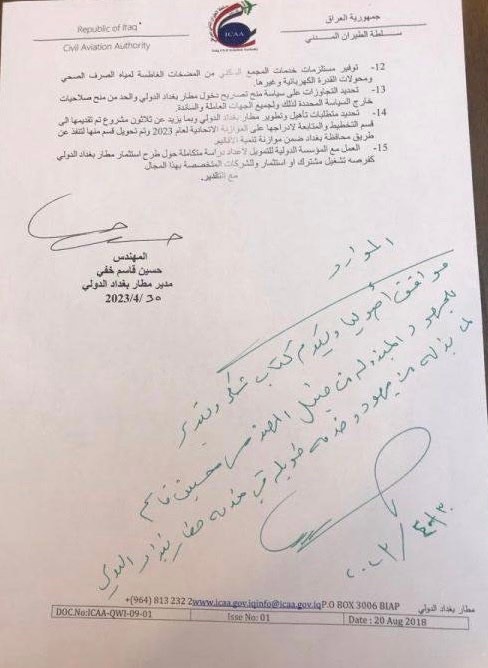 Republic of Iraq
Civil Aviation Authority
ICAA
جمهورية العراق
سلطة الطيران المدني
12- توفير مستلزمات خدمات المجمع السكني من المضخات الغاطسة لمياه الصرف الصحي
ومحولات القدرة الكهربائية وغيرها.
13- تحديد التجاوزات على سياسة منح تصريح دخول مطار بغداد الدولي والحد من منح صلاحيات
خارج السياسة المحددة لذلك ولجميع الجهات العاملة والساندة.
14- تحديد متطلبات تأهيل وتطوير مطار بغداد الدولي وبما يزيد عن ثلاثون مشروع تم تقديمها الى
قسم التخطيط والمتابعة لادراجها على الموازنة الاتحادية لعام 2023 وتم تحويل قسم منها لتنفذ عن
طريق محافظة بغداد ضمن موازنة تنمية الاقاليم.
15- العمل مع المؤسسة الدولية للتمويل لأعداد دراسة متكاملة حول طرح استثمار مطار بغداد الدولي
كفرصه تشغيل مشترك او استثمار وللشركات المتخصصة بهذا المجال
مع التقدير.
المهندس
حسين قاسم خفي
مدير مطار بغداد الدولي
2023/4/30
الموارد
موافق أصوليا ويكرم كتاب شكر وتقدير
للجهود المبذولة من قبل المهندس حسين قاسم
لما بذله من جهود وخدمه طويله في خدمه مطار بغداد الدولي
+(964) 813 232 2www.icaa.gov.iqinfo@icaa.gov.iqP.O BOX 3006 BIAP
مطار بغداد الدولي
DOC.No:ICAA-QWI-09-01
Isse No: 01
Date : 20 Aug 2018